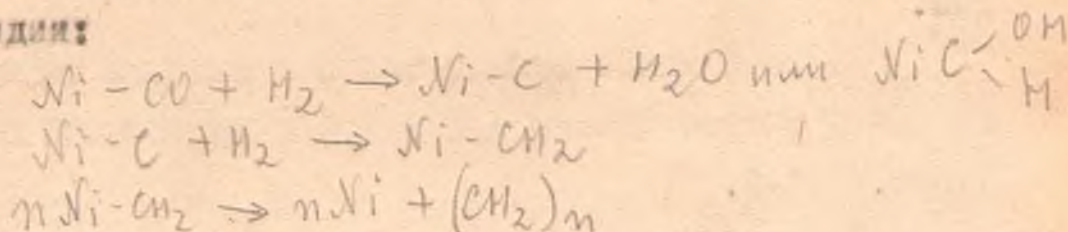 дии:
Ni - CO + H₂ → Ni - C + H₂O или Ni C
OH
H
Ni - C + H₂ → Ni - CH₂
n Ni - CH₂ → n Ni + (CH₂)n